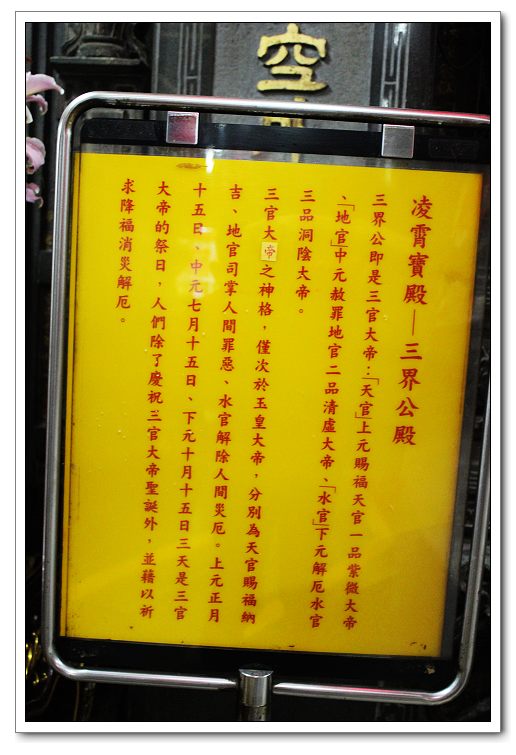 空
凌霄寶殿—三界公殿
三界公即是三官大帝：「天官」上元賜福天官一品紫微大帝
、「地官」中元赦罪地官二品清虛大帝、「水官」下元解厄水官
三品洞陰大帝。
三官大帝之神格，僅次於玉皇大帝，分別為天官賜福納
吉、地官司掌人間罪惡、水官解除人間災厄。上元正月
十五日、中元七月十五日、下元十月十五日三天是三官
大帝的祭日，人們除了慶祝三官大帝聖誕外，並藉以祈
求降福消災解厄。